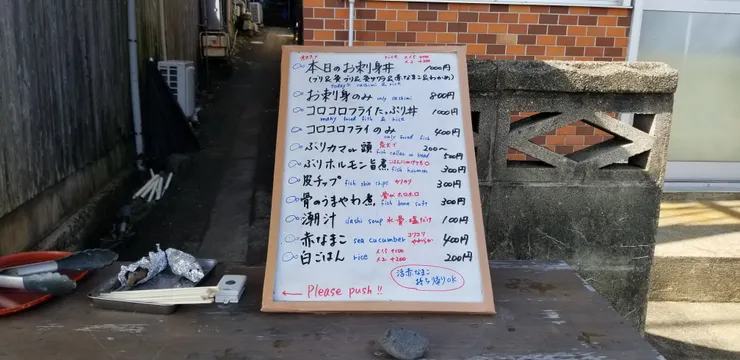 rice x1.5 +100
x2 +200
本日のお刺身丼 1000円
today's sashimi & rice
お刺身のみ only sashimi 800円
コロコロフライたっぷり丼 1000円
many fried fish & rice
コロコロフライのみ 400円
only fried fish
ぶりカマor頭 200〜500円
fish collar or head
ぶりホルモン旨煮 300円
fish hormon
皮チップ fish skin chips カリカリ 300円
骨のうまやわ煮 骨がホロホロ 300円
fish bone soft
潮汁 dashi soup 水・骨・塩だけ 100円
赤なまこ sea cucumber コリコリ 400円
白ごはん rice x1.5 +100 200円
x2 +200
活赤なまこ
持ち帰りOK
← Please push!!